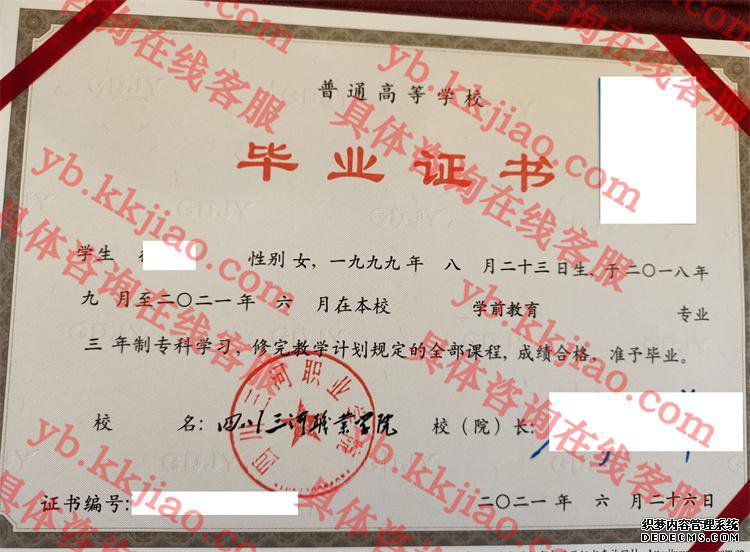 普通高等学校
毕业证书
学生 性别 女, 一九九九年 八 月二十三日生, 于二〇一八年
九 月至二〇二一年 六 月在本校 学前教育 专业
三 年制专科学习, 修完教学计划规定的全部课程, 成绩合格, 准予毕业。
校 名: 四川三河职业学院 校（院）长:
证书编号: 二〇二一年 六 月二十六日
四川三河职业学院
GDJY
yb.kkjiao.com
具体咨询在线客服
织梦内容管理系统
DEDECMS.COM